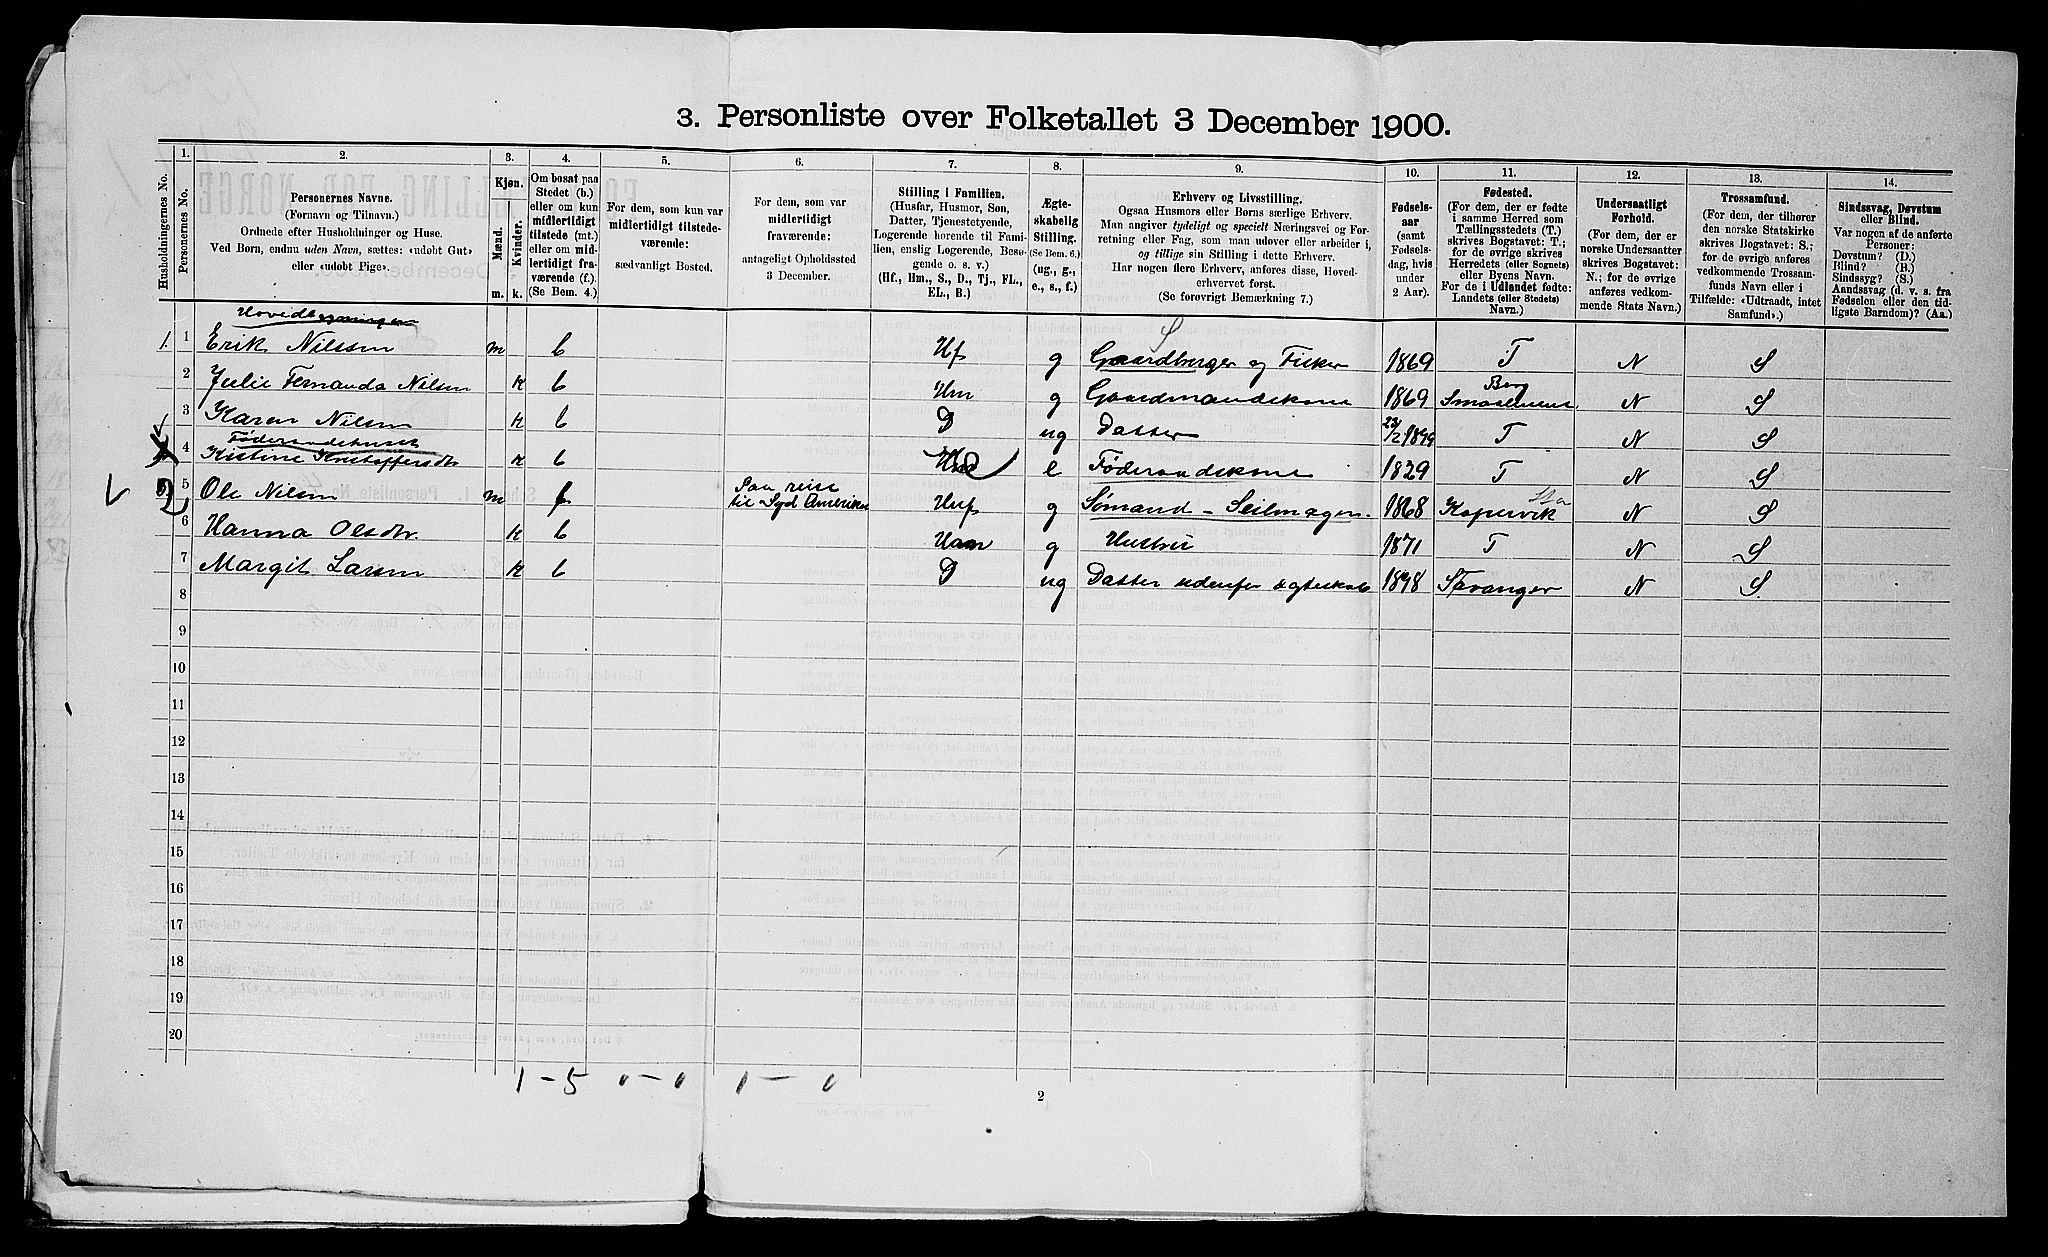 3. Personliste over Folketallet 3 December 1900.
Husholdningernes No.
1.
Personernes No.
2.
Personernes Navne.
(Fornavn og Tilnavn.)
Ordnede efter Husholdninger og Huse.
Ved Børn, endnu uden Navn, sættes: «udøbt Gut»
eller «udøbt Pige».
3.
Kjøn.
Mænd.
Kvinder.
m.
k.
4.
Om bosat paa
Stedet (b.)
eller om kun
midlertidigt
tilstede (mt.)
eller om mid-
lertidigt fra-
værende (f.)
(Se Bem. 4.)
5.
For dem, som kun var
midlertidigt tilstede-
værende:
sædvanligt Bosted.
6.
For dem, som var
midlertidigt
fraværende:
antageligt Opholdssted
3 December.
7.
Stilling i Familien.
(Husfar, Husmor, Søn,
Datter, Tjenestetyende,
Logerende hørende til Fami-
lien, enslig Logerende, Besø-
gende o. s. v.)
(Hf., Hm., S., D., Tj., FL.,
EL., B.)
8.
Ægte-
skabelig
Stilling.
(Se Bem. 6.)
(ug., g.,
e., s., f.)
9.
Erhverv og Livsstilling.
Ogsaa Husmors eller Børns særlige Erhverv.
Man angiver tydeligt og specielt Næringsvei og For-
retning eller Fag, som man udøver eller arbeider i,
og tillige sin Stilling i dette Erhverv.
Har nogen flere Erhverv, anføres disse, Hoved-
erhvervet først.
(Se forøvrigt Bemærkning 7.)
10.
Fødsels-
aar
(samt
Fødsels-
dag, hvis
under
2 Aar).
11.
Fødested.
(For dem, der er fødte
i samme Herred som
Tællingsstedets (T.)
skrives Bogstavet: T.;
for de øvrige skrives
Herredets (eller Sognets)
eller Byens Navn.
For de i Udlandet fødte:
Landets (eller Stedets)
Navn.)
12.
Undersaatligt
Forhold.
(For dem, der er
norske Undersaatter
skrives Bogstavet:
N.; for de øvrige
anføres vedkom-
mende Stats Navn.)
13.
Trossamfund.
(For dem, der tilhører
den norske Statskirke
skrives Bogstavet: S.;
for de øvrige anføres
vedkommende Trossam-
funds Navn eller i
Tilfælde: «Udtraadt, intet
Samfund».)
14.
Sindssvag, Døvstum
eller Blind.
Var nogen af de anførte
Personer:
Døvstum? (D.)
Blind? (B.)
Sindssyg? (S.)
Aandssvag (d. v. s. fra
Fødselen eller den tid-
ligste Barndom)? (Aa.)
Hovedbygningen
1. 1 Erik Nilssen m b Hf g Gaardbruger og Fisker 1869 T N S
2 Julie Fernanda Nilsen k b Hm g Gaardmandskone 1869 Berg Smaalenene N S
3 Karen Nilsen k b D ug Datter 22/2 1899 T N S
Føderaadshuset
4 Kistine Kristoffersdtr k b e Føderaadskone 1829 T N S
2 5 Ole Nilsen m f Paa reise til Syd Amerika Huf g Sømand - Seilmager. 1868 Kopervik Sta N S
6 Hanna Olsdtr. k b Hum g Hustru 1871 T N S
7 Margit Larsen k b D ug Datter udenfor ægteskab 1898 Stavanger N S.
8
9
10
11
12
13
14
15
16
17
18
19
20
1 - 5 0 - 0 1 - 0
2